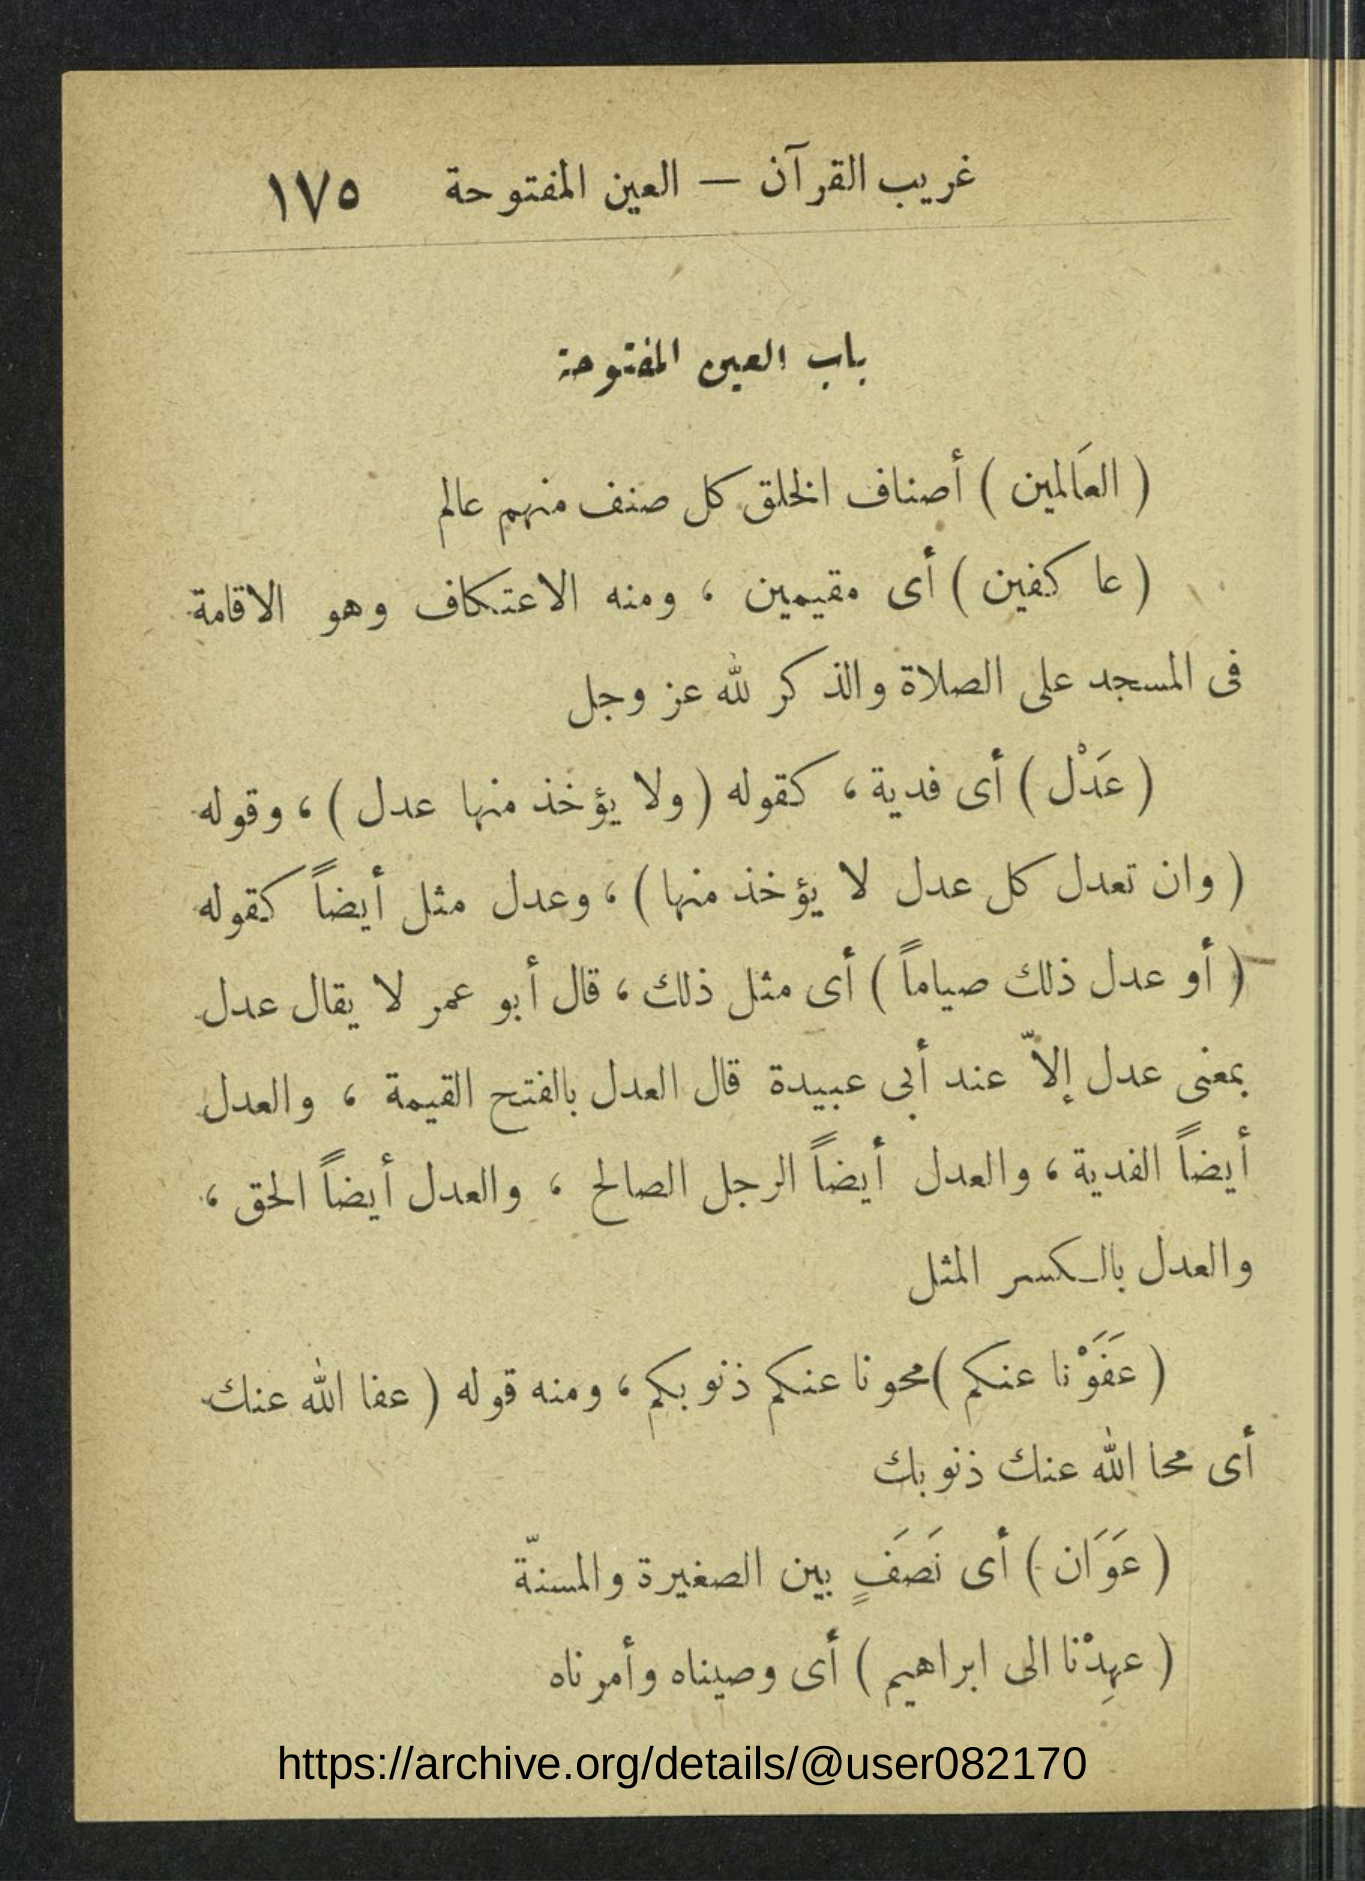 غريب القرآن — العين المفتوحة ١٧٥
باب العين المفتوحة
( العَالمين ) أصناف الخلق كل صنف منهم عالم
( عاكفين ) أى مقيمين ، ومنه الاعتكاف وهو الاقامة
فى المسجد على الصلاة والذكر لله عز وجل
( عَدْل ) أى فدية ، كقوله ( ولا يؤخذ منها عدل ) ، وقوله
( وان تعدل كل عدل لا يؤخذ منها ) ، وعدل مثل أيضاً كقوله
( أو عدل ذلك صياماً ) أى مثل ذلك ، قال أبو عمر لا يقال عدل
بمعنى عدل إلاّ عند أبى عبيدة قال العدل بالفتح القيمة ، والعدل
أيضاً الفدية ، والعدل أيضاً الرجل الصالح ، والعدل أيضاً الحق ،
والعدل بالكسر المثل
( عَفَوْنا عنكم ) محونا عنكم ذنوبكم ، ومنه قوله ( عفا الله عنك
أى محا الله عنك ذنوبك
( عَوَان ) أى نَصَفٍ بين الصغيرة والمسنّة
( عهِدْنا الى ابراهيم ) أى وصيناه وأمرناه
https://archive.org/details/@user082170